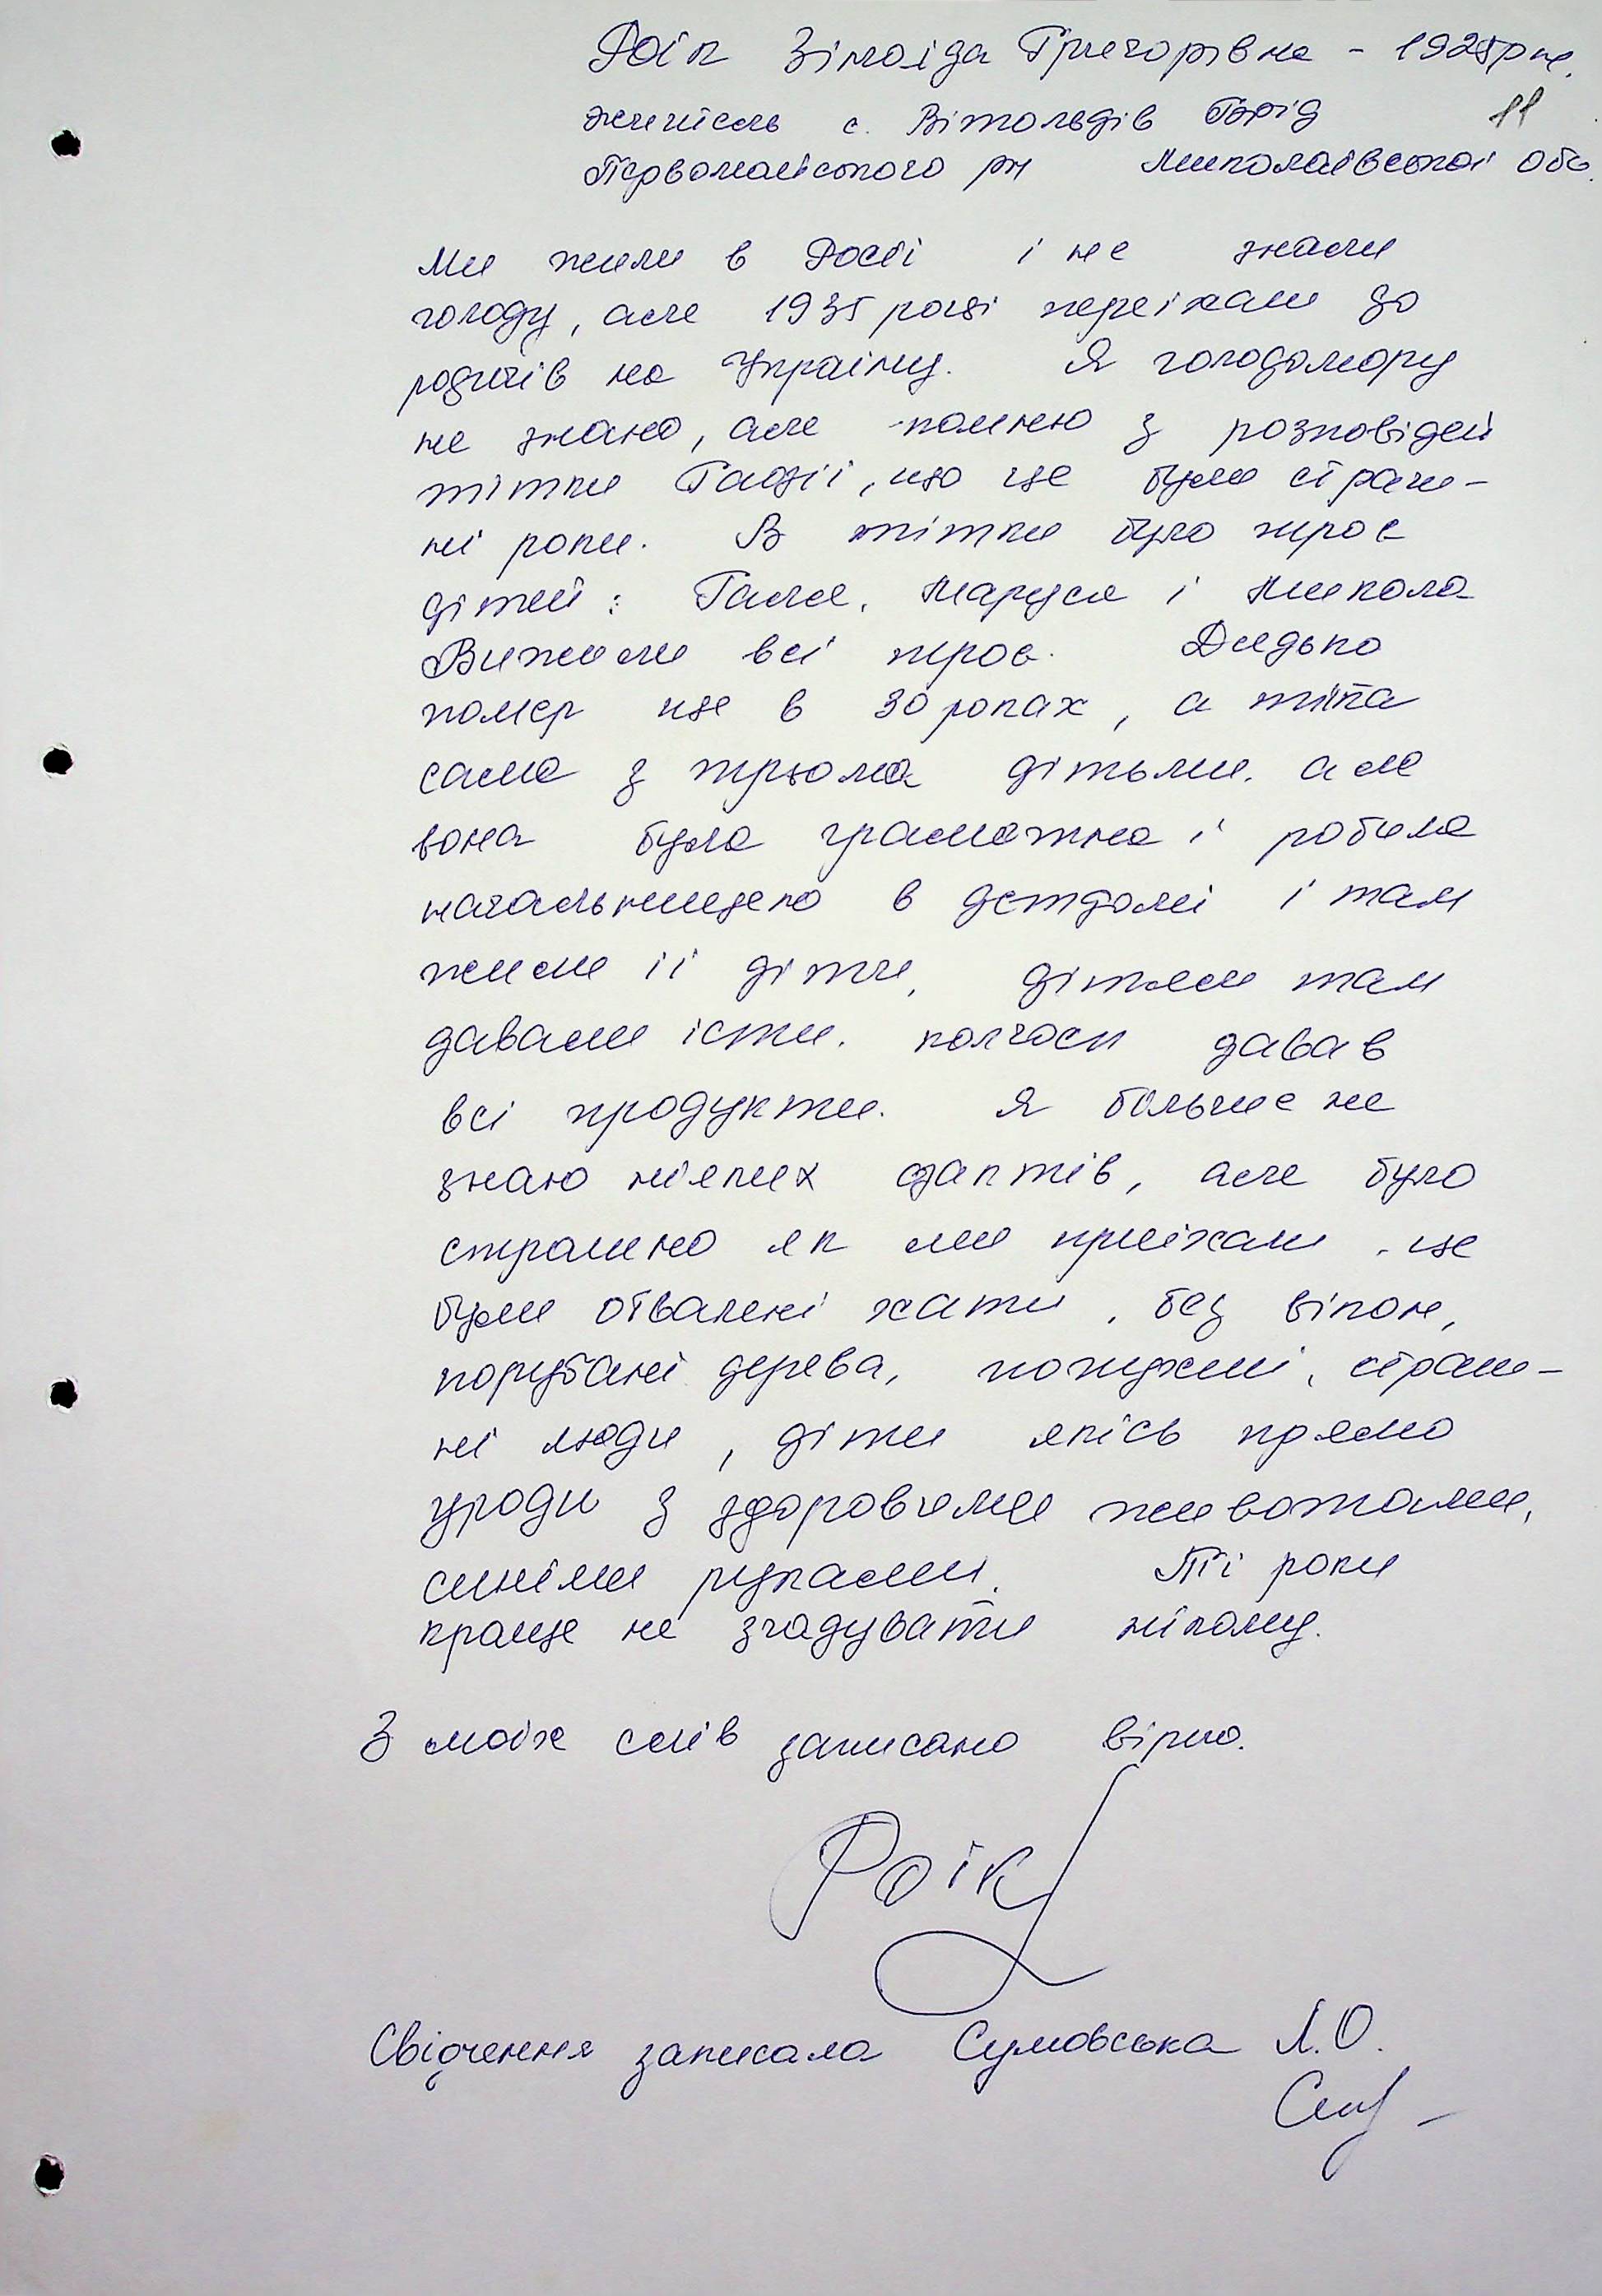 Роїк Зінаїда Григорівна - 1925 р н.
11
житель с. Вітольдів Брід
Первомайського рн Миколаївської обл.
Ми жили в Росії і не знали
голоду, але 1935 році переїхали до
родичів на Україну. Я голодомору
не знаю, але помню з розповідей
тітки Гафії, що це були страш-
ні роки. В тітки було троє
дітей: Галя, Маруся і Микола
Вижили всі троє. Дядько
помер ще в 30 роках, а тітка
сама з трьома дітьми. але
вона була грамотна і робила
начальницею в детдомі і там
жили її діти, дітям там
давали їсти. колгосп давав
всі продукти. Я більше не
знаю ніяких фактів, але було
страшно як ми приїхали, ще
були обвалені хати, без вікон,
порубані дерева, похужені, страш-
ні люди, діти якісь прямо
уроди з здоровими животами,
синіми руками. Ті роки
краще не згадувати нікому.
З моїх слів записано вірно.
Роїк
Свідчення записала Сумовська Л.О.